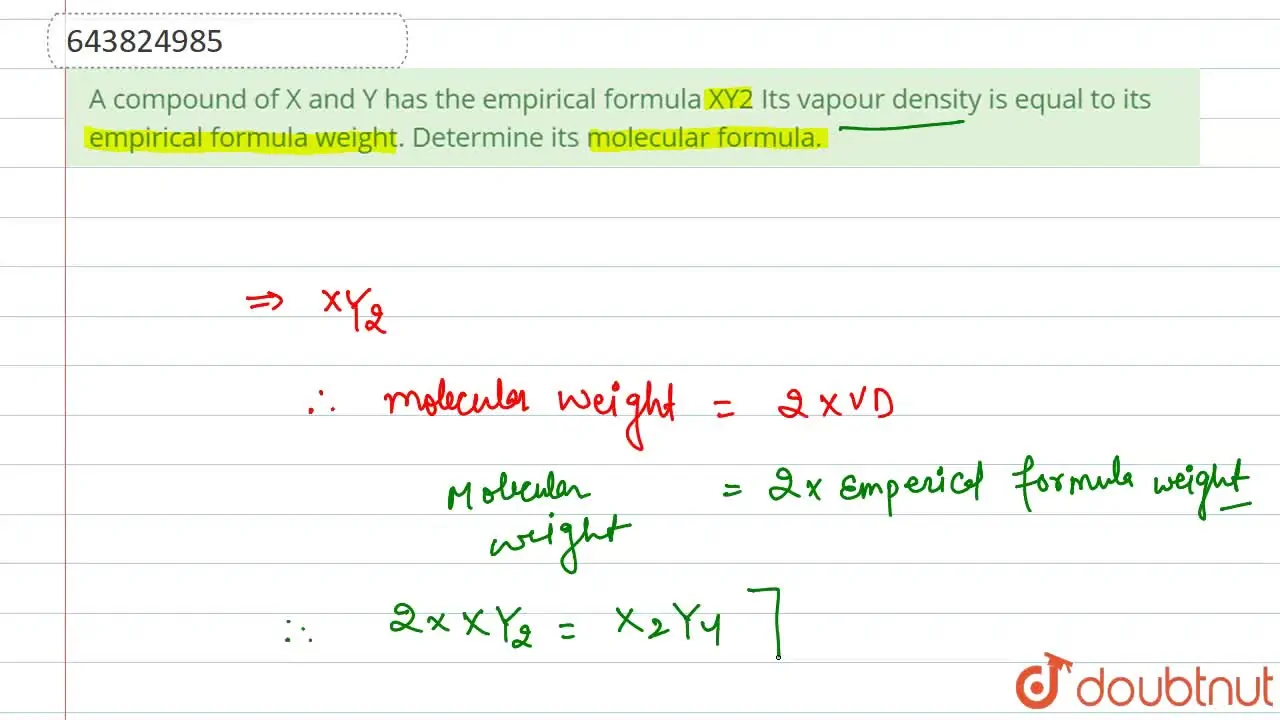 643824985
A compound of X and Y has the empirical formula XY2 Its vapour density is equal to its
empirical formula weight. Determine its molecular formula.
⇒ XY₂
∴ molecular weight = 2 x VD
Molecular = 2x Emperical formula weight
weight
∴ 2x XY₂ = X₂Y₄
doubtnut